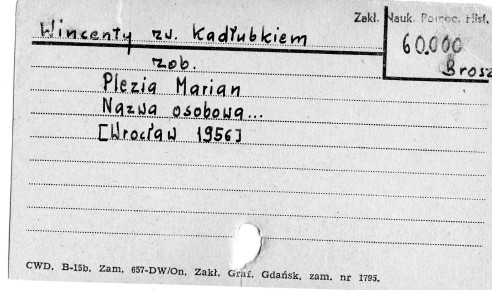 Zakł. Nauk. Pomoc. Hist.
Wincenty zw. Kadłubkiem
60.000
Brosz
zob.
Plezia Marian
Nazwa osobowa...
[Wrocław 1956]
CWD. B-15b. Zam. 657-DW/On. Zakł. Graf. Gdańsk, zam. nr 1795.